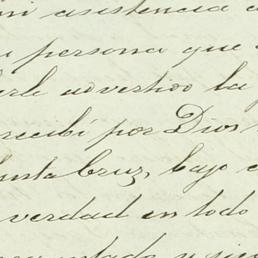 mi asistencia
persona que
advertido la
recibí por Dios
Santa Cruz, bajo
verdad en todo